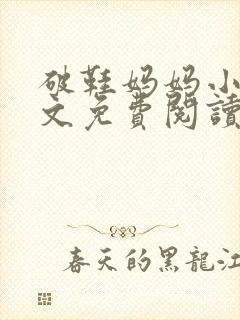 破鞋妈妈小
文免費閱讀
春天的黑龍江